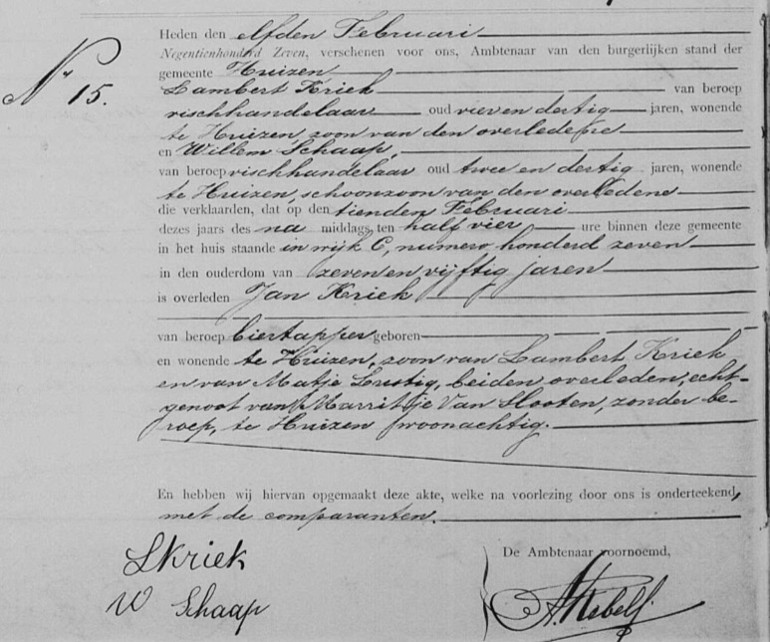 Heden den elfden Februari
Negentienhonderd Zeven, verschenen voor ons, Ambtenaar van den burgerlijken stand der
gemeente Huizen
No 15.
Lambert Kriek van beroep
vischhandelaar oud vier en dertig jaren, wonende
te Huizen, zoon van den overledene
en Willem Schaap,
van beroep vischhandelaar oud twee en dertig jaren, wonende
te Huizen, schoonzoon van den overledene
die verklaarden, dat op den tienden Februari
dezes jaars des na middags ten half vier ure binnen deze gemeente
in het huis staande in wijk C, numero honderd zeven
in den ouderdom van zeven en vijftig jaren
is overleden Jan Kriek
van beroep biertapper geboren
en wonende te Huizen, zoon van Lambert Kriek
en van Matje Lustig, beiden overleden, echt-
genoot van Marritje Van Slooten, zonder be-
roep, te Huizen woonachtig.
En hebben wij hiervan opgemaakt deze akte, welke na voorlezing door ons is onderteekend,
met de comparanten.
LKriek
De Ambtenaar voornoemd,
W Schaap